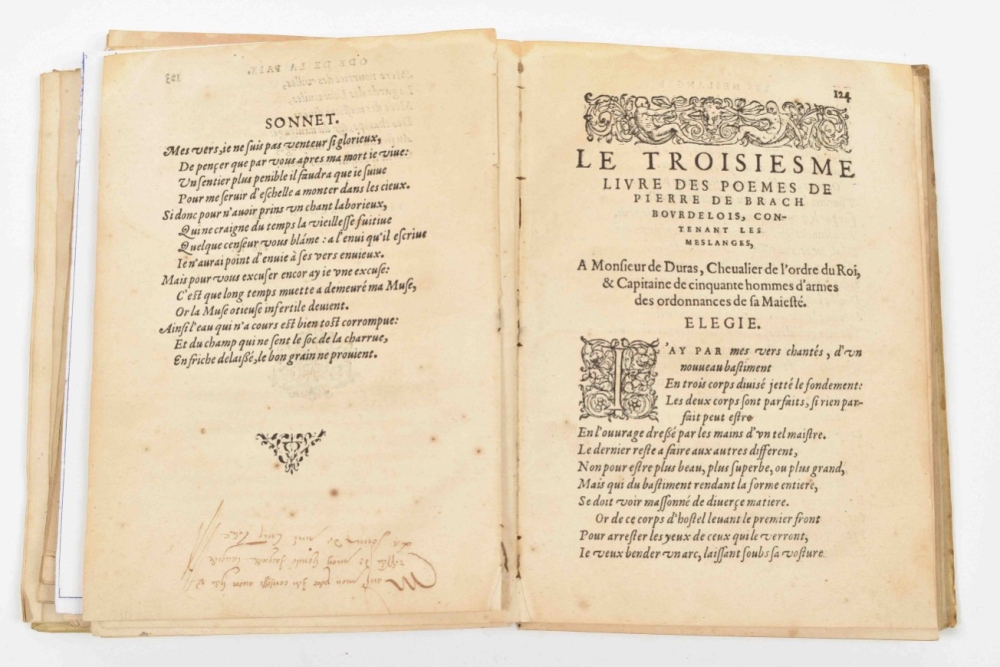 SONNET.
Mes vers, ie ne suis pas venteur si glorieux,
De pençer que par vous apres ma mort ie vive:
Un sentier plus penible il faudra que ie suive
Pour me seruir d'eschelle a monter dans les cieux.
Si donc pour n'auoir prins un chant laborieux,
Qui ne craigne du temps la vieillesse fuitiue
Quelque censeur vous bláme: a l'enui qu'il escriue
Ie n'aurai point d'enuie à ses vers enuieux.
Mais pour vous excuser encor ay ie vne excuse:
C'est que long temps muette a demeuré ma Muse,
Or la Muse otieuse infertile deuient.
Ainsi l'eau qui n'a cours est bien tost corrompue:
Et du champ qui ne sent le soc de la charrue,
En friche delaissé, le bon grain ne prouient.
124
LE TROISIESME
LIVRE DES POEMES DE
PIERRE DE BRACH
BOVRDELOIS, CON-
TENANT LES
MESLANGES,
A Monsieur de Duras, Cheualier de l'ordre du Roi,
& Capitaine de cinquante hommes d'armes
des ordonnances de sa Maiesté.
ELEGIE.
I'AY PAR mes vers chantés, d'vn
nouueau bastiment
En trois corps diuisé jetté le fondement:
Les deux corps sont parfaits, si rien par-
fait peut estre
En l'ouurage dressé par les mains d'vn tel maistre.
Le dernier reste a faire aux autres different,
Non pour estre plus beau, plus superbe, ou plus grand,
Mais qui du bastiment rendant la forme entiere,
Se doit voir massonné de diuerçe matiere.
Or de ce corps d'hostel leuant le premier front
Pour arrester les yeux de ceux qui le verront,
Ie veux bender vn arc, laissant soubs sa vosture